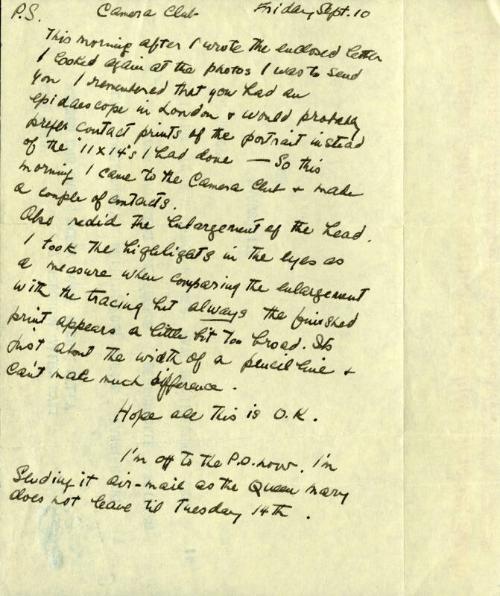 P.S. Camera Club Friday, Sept. 10
This morning after I wrote the enclosed letter
I looked again at the photos I was to send
you I remembered that you had an
epidascope in London & would probably
prefer contact prints of the portrait instead
of the 11x14's I had done — So this
morning I came to the Camera Club & made
a couple of contacts.
Also redid the Enlargement of the head.
I took the highlights in the eyes as
a measure when comparing the enlargement
with the tracing but always the finished
print appears a little bit too broad. Its
just about the width of a pencil line &
can't make much difference.
Hope all this is O.K.
I'm off to the P.O. now. I'm
Sending it air-mail as the Queen Mary
does not leave til Tuesday 14th.